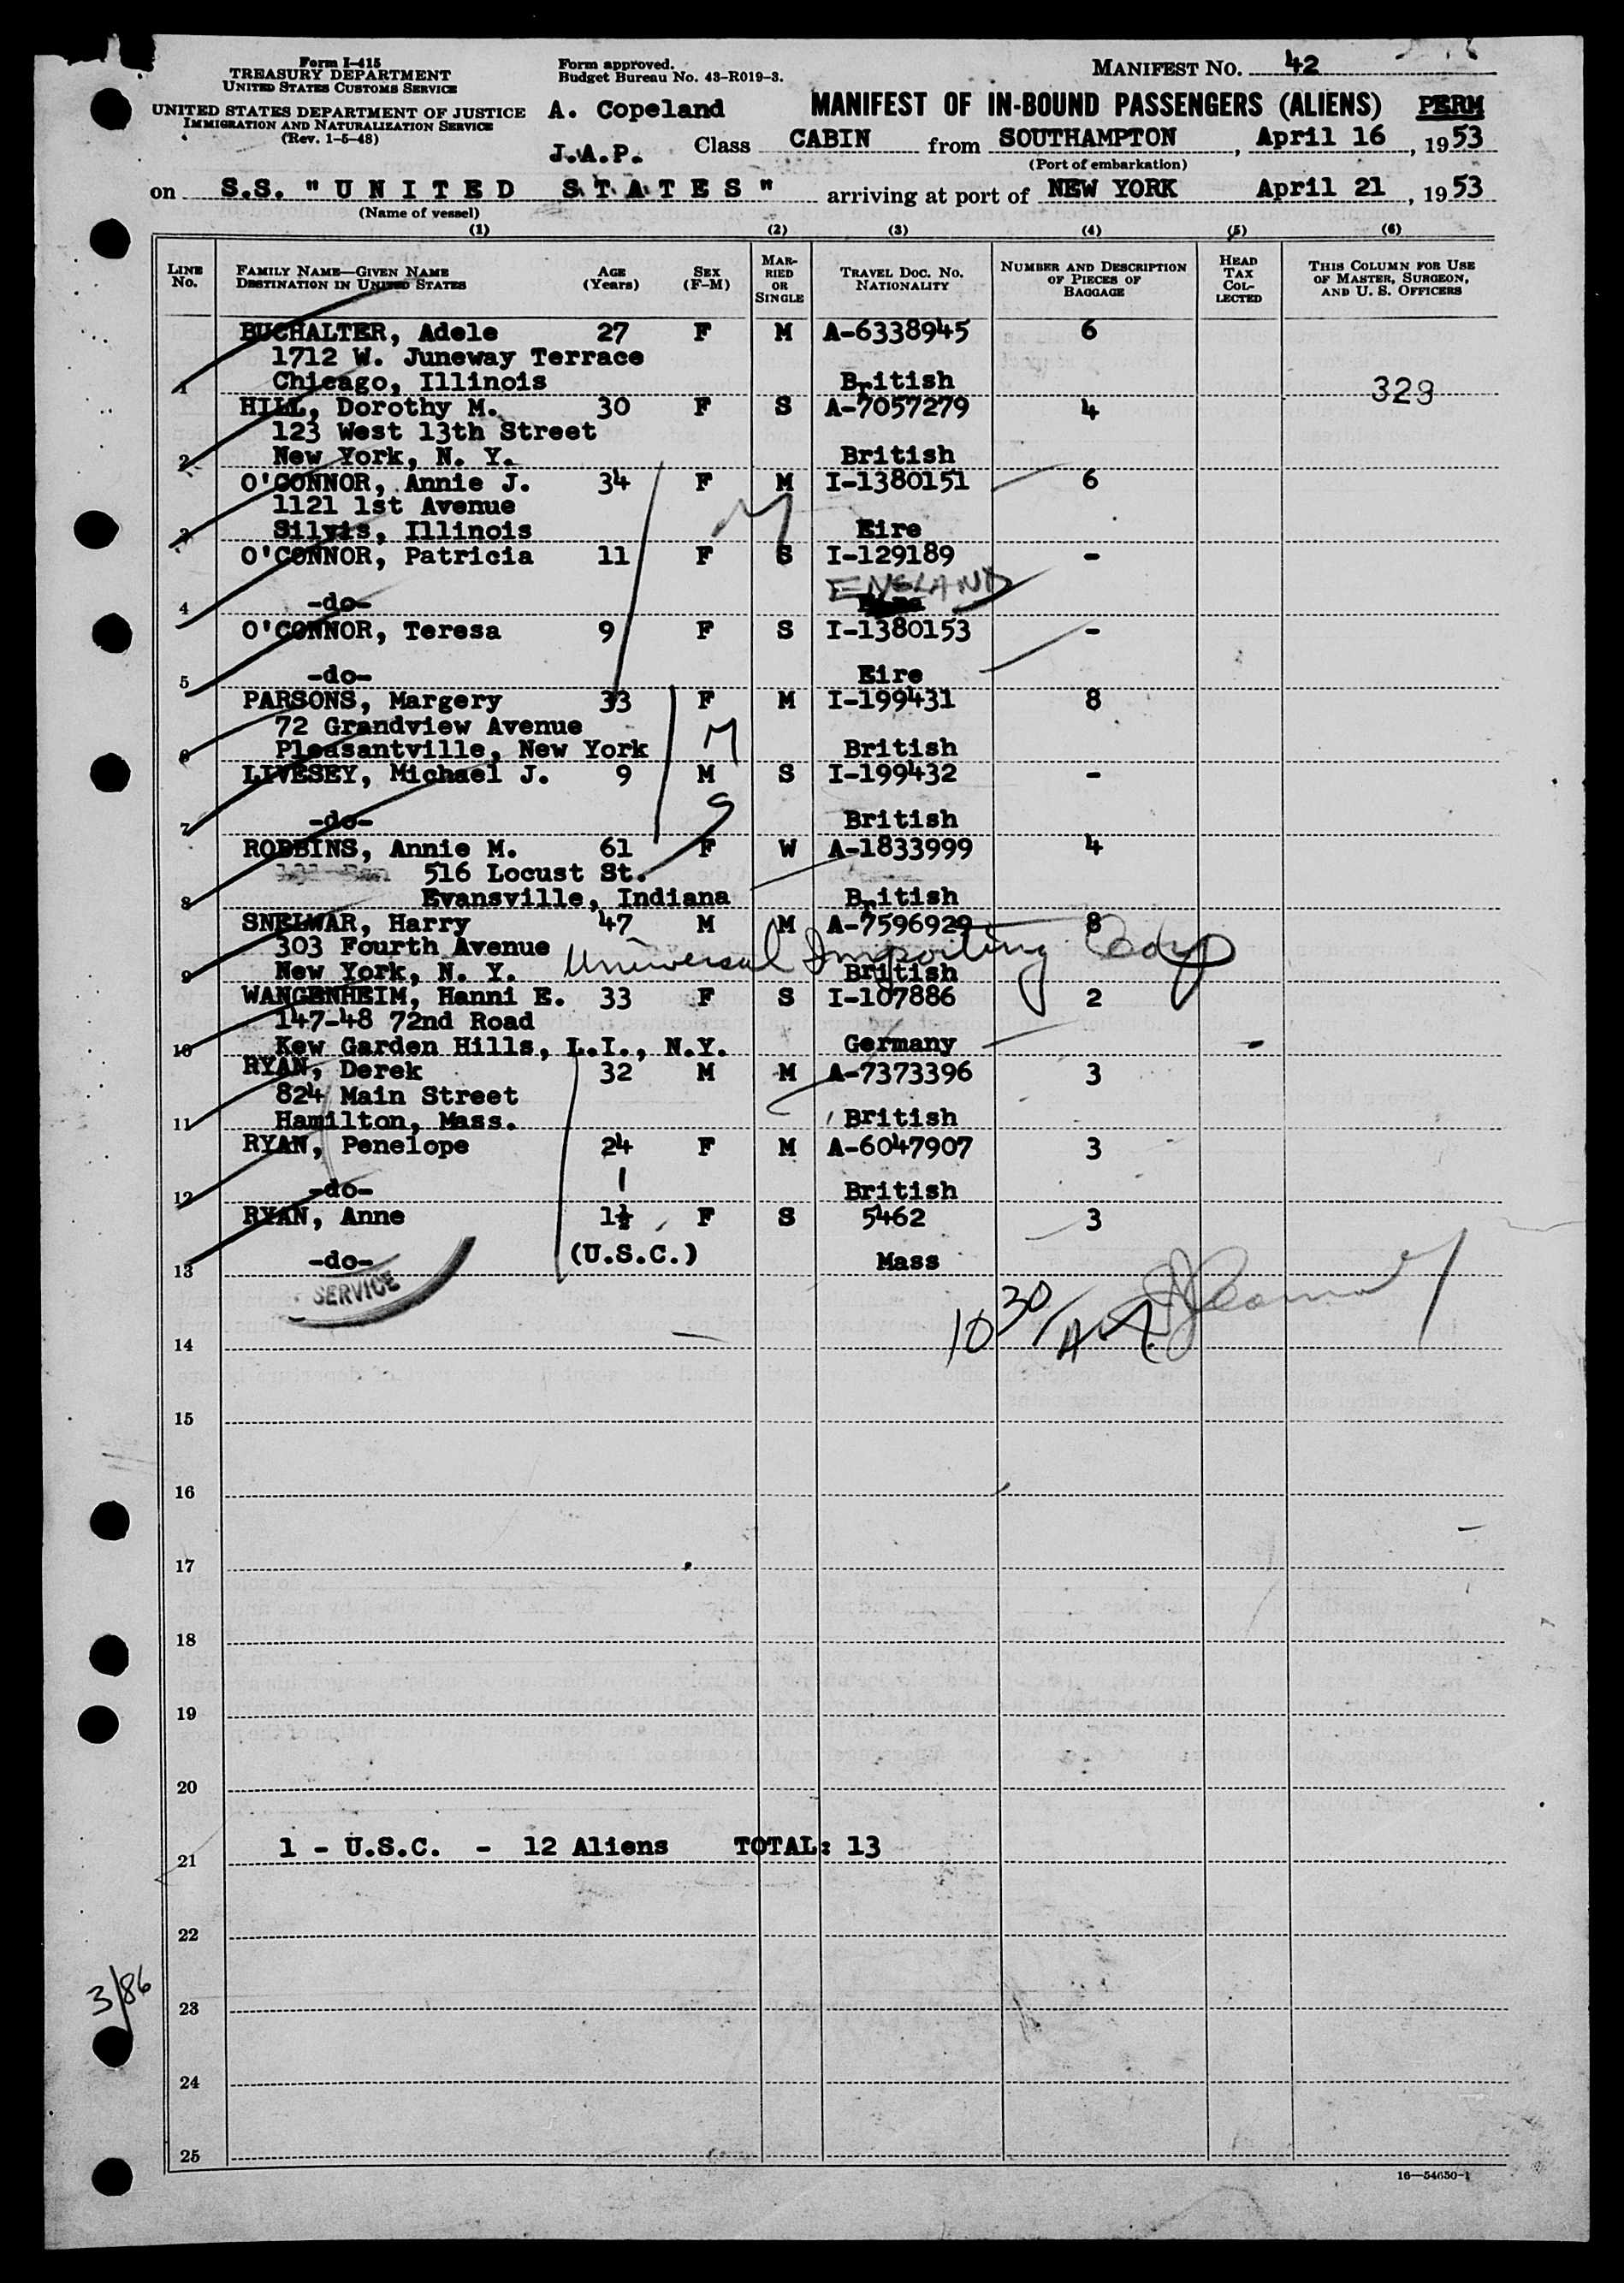 Form I-415
TREASURY DEPARTMENT
UNITED STATES CUSTOMS SERVICE
UNITED STATES DEPARTMENT OF JUSTICE
IMMIGRATION AND NATURALIZATION SERVICE
(Rev. 1-5-48)
Form approved.
Budget Bureau No. 43-R019-3.
A. Copeland
J.A.P.
MANIFEST NO. 42
MANIFEST OF IN-BOUND PASSENGERS (ALIENS) PERM
Class CABIN from SOUTHAMPTON, April 16, 1953
(Port of embarkation)
on S.S. "UNITED STATES" arriving at port of NEW YORK April 21, 1953
(Name of vessel)
(1) (2) (3) (4) (5) (6)
LINE NO. FAMILY NAME—GIVEN NAME DESTINATION IN UNITED STATES AGE (Years) SEX (F-M) MARRIED OR SINGLE TRAVEL DOC. NO. NATIONALITY NUMBER AND DESCRIPTION OF PIECES OF BAGGAGE HEAD TAX COLLECTED THIS COLUMN FOR USE OF MASTER, SURGEON, AND U. S. OFFICERS
BUCHALTER, Adele 27 F M A-6338945 6
1712 W. Juneway Terrace
1 Chicago, Illinois British 329
HILL, Dorothy M. 30 F S A-7057279 4
123 West 13th Street
2 New York, N. Y. British
O'CONNOR, Annie J. 34 F M I-1380151 6
1121 1st Avenue
3 Silvis, Illinois Eire
O'CONNOR, Patricia 11 F S I-129189 -
ENGLAND
4 -do-
O'CONNOR, Teresa 9 F S I-1380153 -
5 -do- Eire
PARSONS, Margery 33 F M I-199431 8
72 Grandview Avenue
6 Pleasantville, New York British
LIVESEY, Michael J. 9 M S I-199432 -
7 -do- British
ROBBINS, Annie M. 61 F W A-1833999 4
516 Locust St.
8 Evansville, Indiana British
SNELWAR, Harry 47 M M A-7596929 8
303 Fourth Avenue Universal Importing Corp
9 New York, N. Y. British
WANGENHEIM, Hanni E. 33 F S I-107886 2
147-48 72nd Road
10 Kew Garden Hills, L.I., N.Y. Germany
RYAN, Derek 32 M M A-7373396 3
824 Main Street
11 Hamilton, Mass. British
RYAN, Penelope 24 F M A-6047907 3
12 -do- British
RYAN, Anne 1½ F S 5462 3
13 -do- (U.S.C.) Mass
SERVICE
10 30/A
14
15
16
17
18
19
20
21 1 - U.S.C. - 12 Aliens TOTAL: 13
22
23
3/86
24
25
16—54650-1